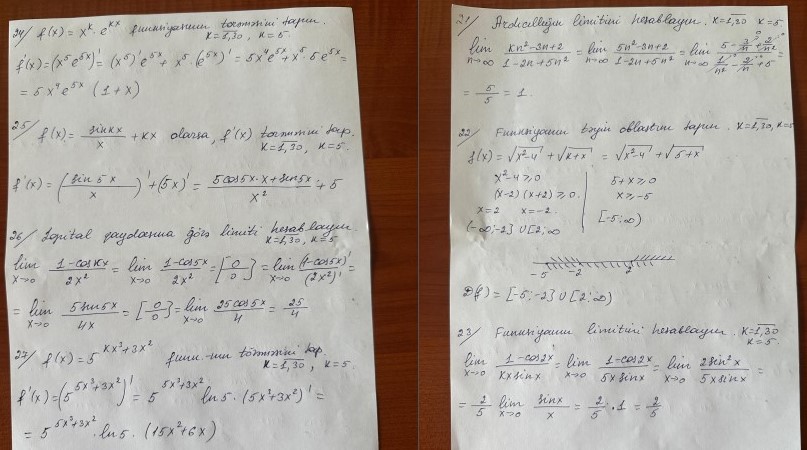 24/ f(x) = x^k · e^kx funksiyasının törəməsini tapın.
k=1,30, k=5
f'(x) = (x^5 e^5x)' = (x^5)' e^5x + x^5 · (e^5x)' = 5x^4 e^5x + x^5 · 5 e^5x =
= 5x^4 e^5x (1+x)
25/ f(x) = sinkx/x + kx olarsa, f'(x) törəməsini tap.
k=1,30, k=5.
f'(x) = (sin5x/x)' + (5x)' = (5cos5x·x + sin5x)/x² + 5
26/ Lopital qaydasına görə limiti hesablayın
k=1,30, k=5
lim x→0 (1-coskx)/2x² = lim x→0 (1-cos5x)/2x² = [0/0] = lim x→0 (1-cos5x)'/(2x²)' =
= lim x→0 5sin5x/4x = [0/0] = lim x→0 25cos5x/4 = 25/4
27/ f(x) = 5^(kx³+3x²) funk.-nın törəməsini tap.
k=1,30, k=5.
f'(x) = (5^(5x³+3x²))' = 5^(5x³+3x²) ln5 · (5x³+3x²)' =
= 5^(5x³+3x²) · ln5 · (15x²+6x)
21/ Ardıcıllığın limitini hesablayın. k=1,30 k=5
lim n→∞ (kn²-3n+2)/(1-2n+5n²) = lim n→∞ (5n²-3n+2)/(1-2n+5n²) = lim n→∞ (5 - 3/n + 2/n²)/(1/n² - 2/n + 5) =
= 5/5 = 1.
22/ Funksiyanın təyin oblastını tapın. k=1,30, k=5
f(x) = √(x²-4) + √(k+x) = √(x²-4) + √(5+x)
x²-4 ≥ 0 5+x ≥ 0
(x-2)(x+2) ≥ 0. x ≥ -5
x=2 x=-2. [-5;∞)
(-∞;-2] ∪ [2;∞
-5 -2 2
D(f) = [-5;-2] ∪ [2;∞)
23/ Funksiyanın limitini hesablayın. k=1,30
k=5.
lim x→0 (1-cos2x)/(kx sinx) = lim x→0 (1-cos2x)/(5x sinx) = lim x→0 2sin²x/(5x sinx) =
= 2/5 lim x→0 sinx/x = 2/5 · 1 = 2/5